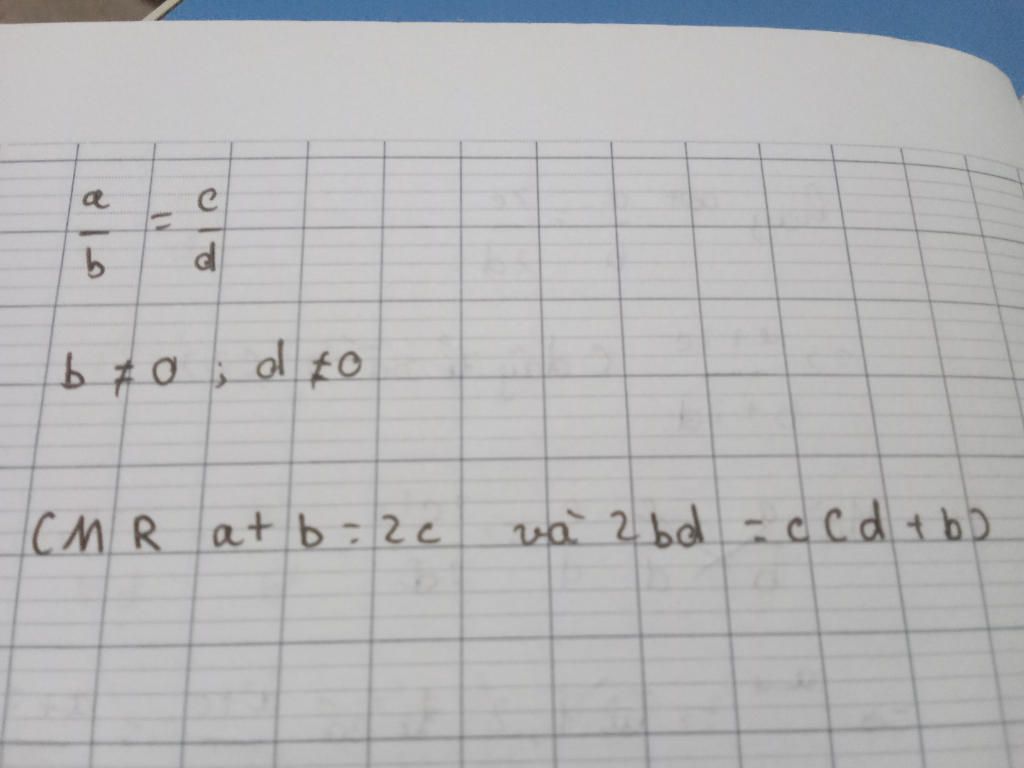 a/b = c/d
b ≠ 0 ; d ≠ 0
CMR a + b = 2c và 2bd = c(d + b)